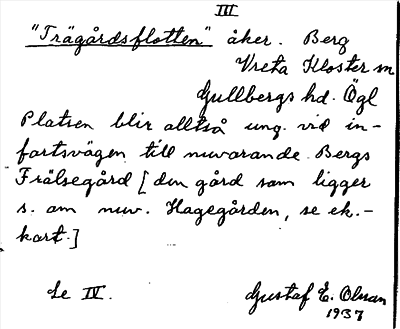 III
"Trägårdsflotten" åker. Berg
Vreta Kloster sn
Gullbergs hd. Ögl
Platsen blir alltså ung. vid in-
fartsvägen till nuvarande Bergs
Frälsegård [den gård som ligger
s. om nuv. Hagegården, se ek.-
kart.]
Se IV.
Gustaf E. Olsson
1937